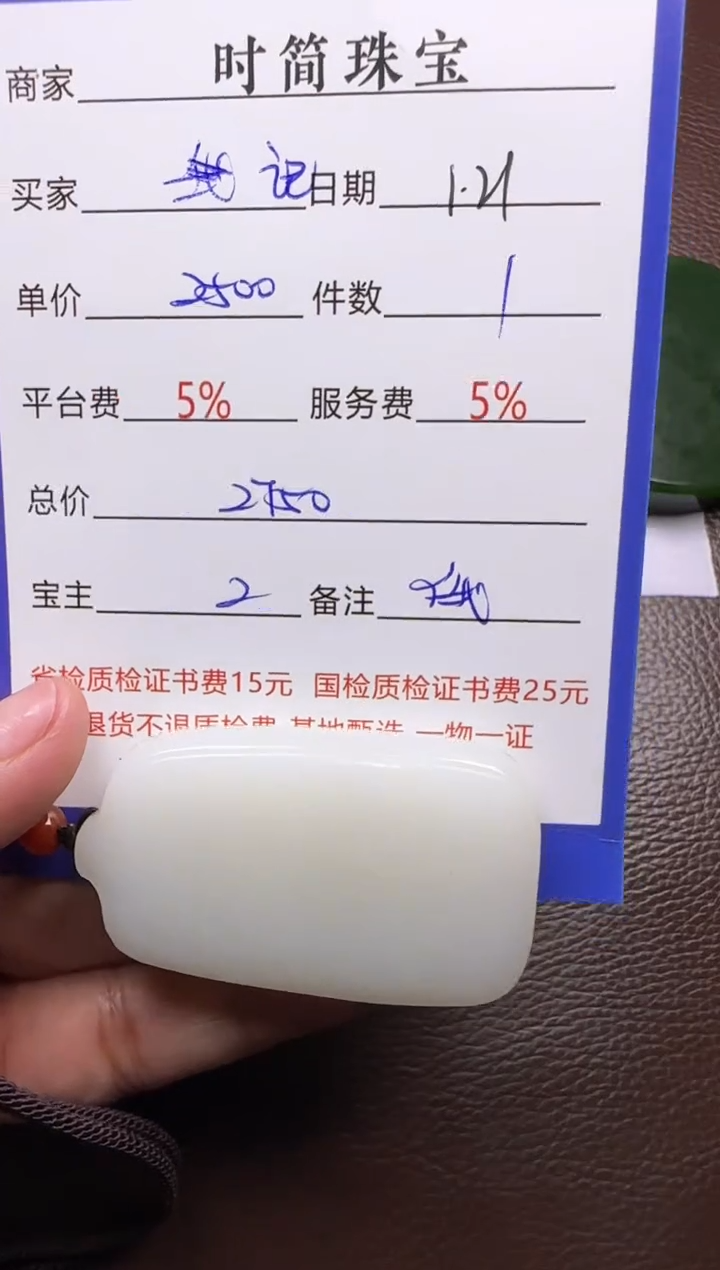 商家 时简珠宝
买家 记 日期 1.21
单价 2500 件数 1
平台费 5% 服务费 5%
总价 2750
宝主 2 备注
省检质检证书费15元 国检质检证书费25元
退货不退质检费 基地甄选 一物一证